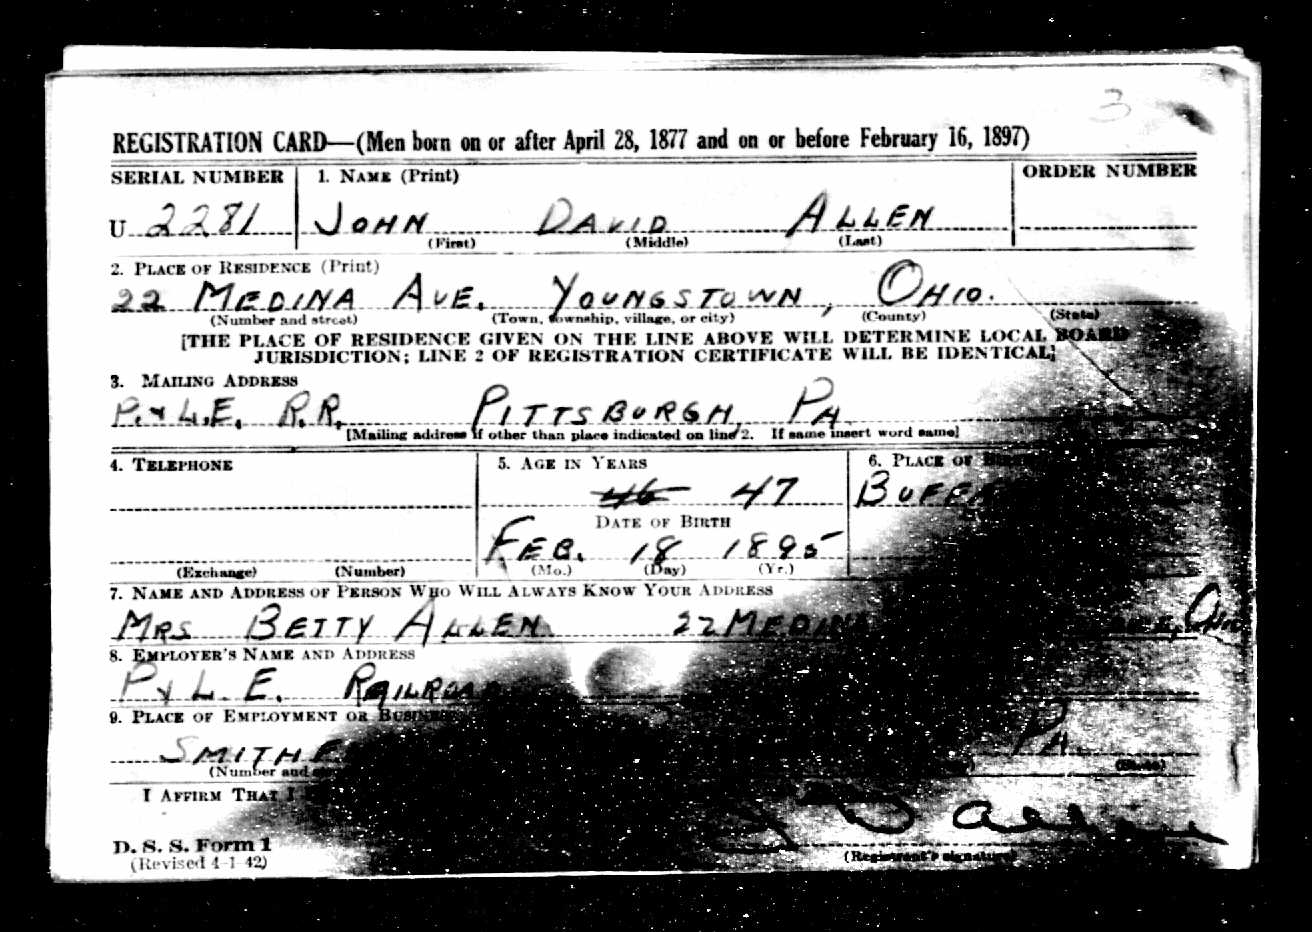 3
REGISTRATION CARD—(Men born on or after April 28, 1877 and on or before February 16, 1897)
SERIAL NUMBER 1. NAME (Print) ORDER NUMBER
U 2281 JOHN DAVID ALLEN
(First) (Middle) (Last)
2. PLACE OF RESIDENCE (Print)
22 MEDINA AVE. YOUNGSTOWN, OHIO.
(Number and street) (Town, township, village, or city) (County) (State)
[THE PLACE OF RESIDENCE GIVEN ON THE LINE ABOVE WILL DETERMINE LOCAL BOARD
JURISDICTION; LINE 2 OF REGISTRATION CERTIFICATE WILL BE IDENTICAL]
3. MAILING ADDRESS
P. & L.E. R.R. PITTSBURGH, PA
[Mailing address if other than place indicated on line 2. If same insert word same]
4. TELEPHONE 5. AGE IN YEARS 6. PLACE OF
46 47
DATE OF BIRTH
FEB. 18 1895
(Exchange) (Number) (Mo.) (Day) (Yr.)
7. NAME AND ADDRESS OF PERSON WHO WILL ALWAYS KNOW YOUR ADDRESS
MRS BETTY ALLEN 22 MEDINA OHIO
8. EMPLOYER'S NAME AND ADDRESS
P & L. E. RAILROAD
9. PLACE OF EMPLOYMENT OR
PA.
(Number and (State)
I AFFIRM THAT I
D Allen
D. S. S. Form 1
(Revised 4-1-42) (Registrant's signature)